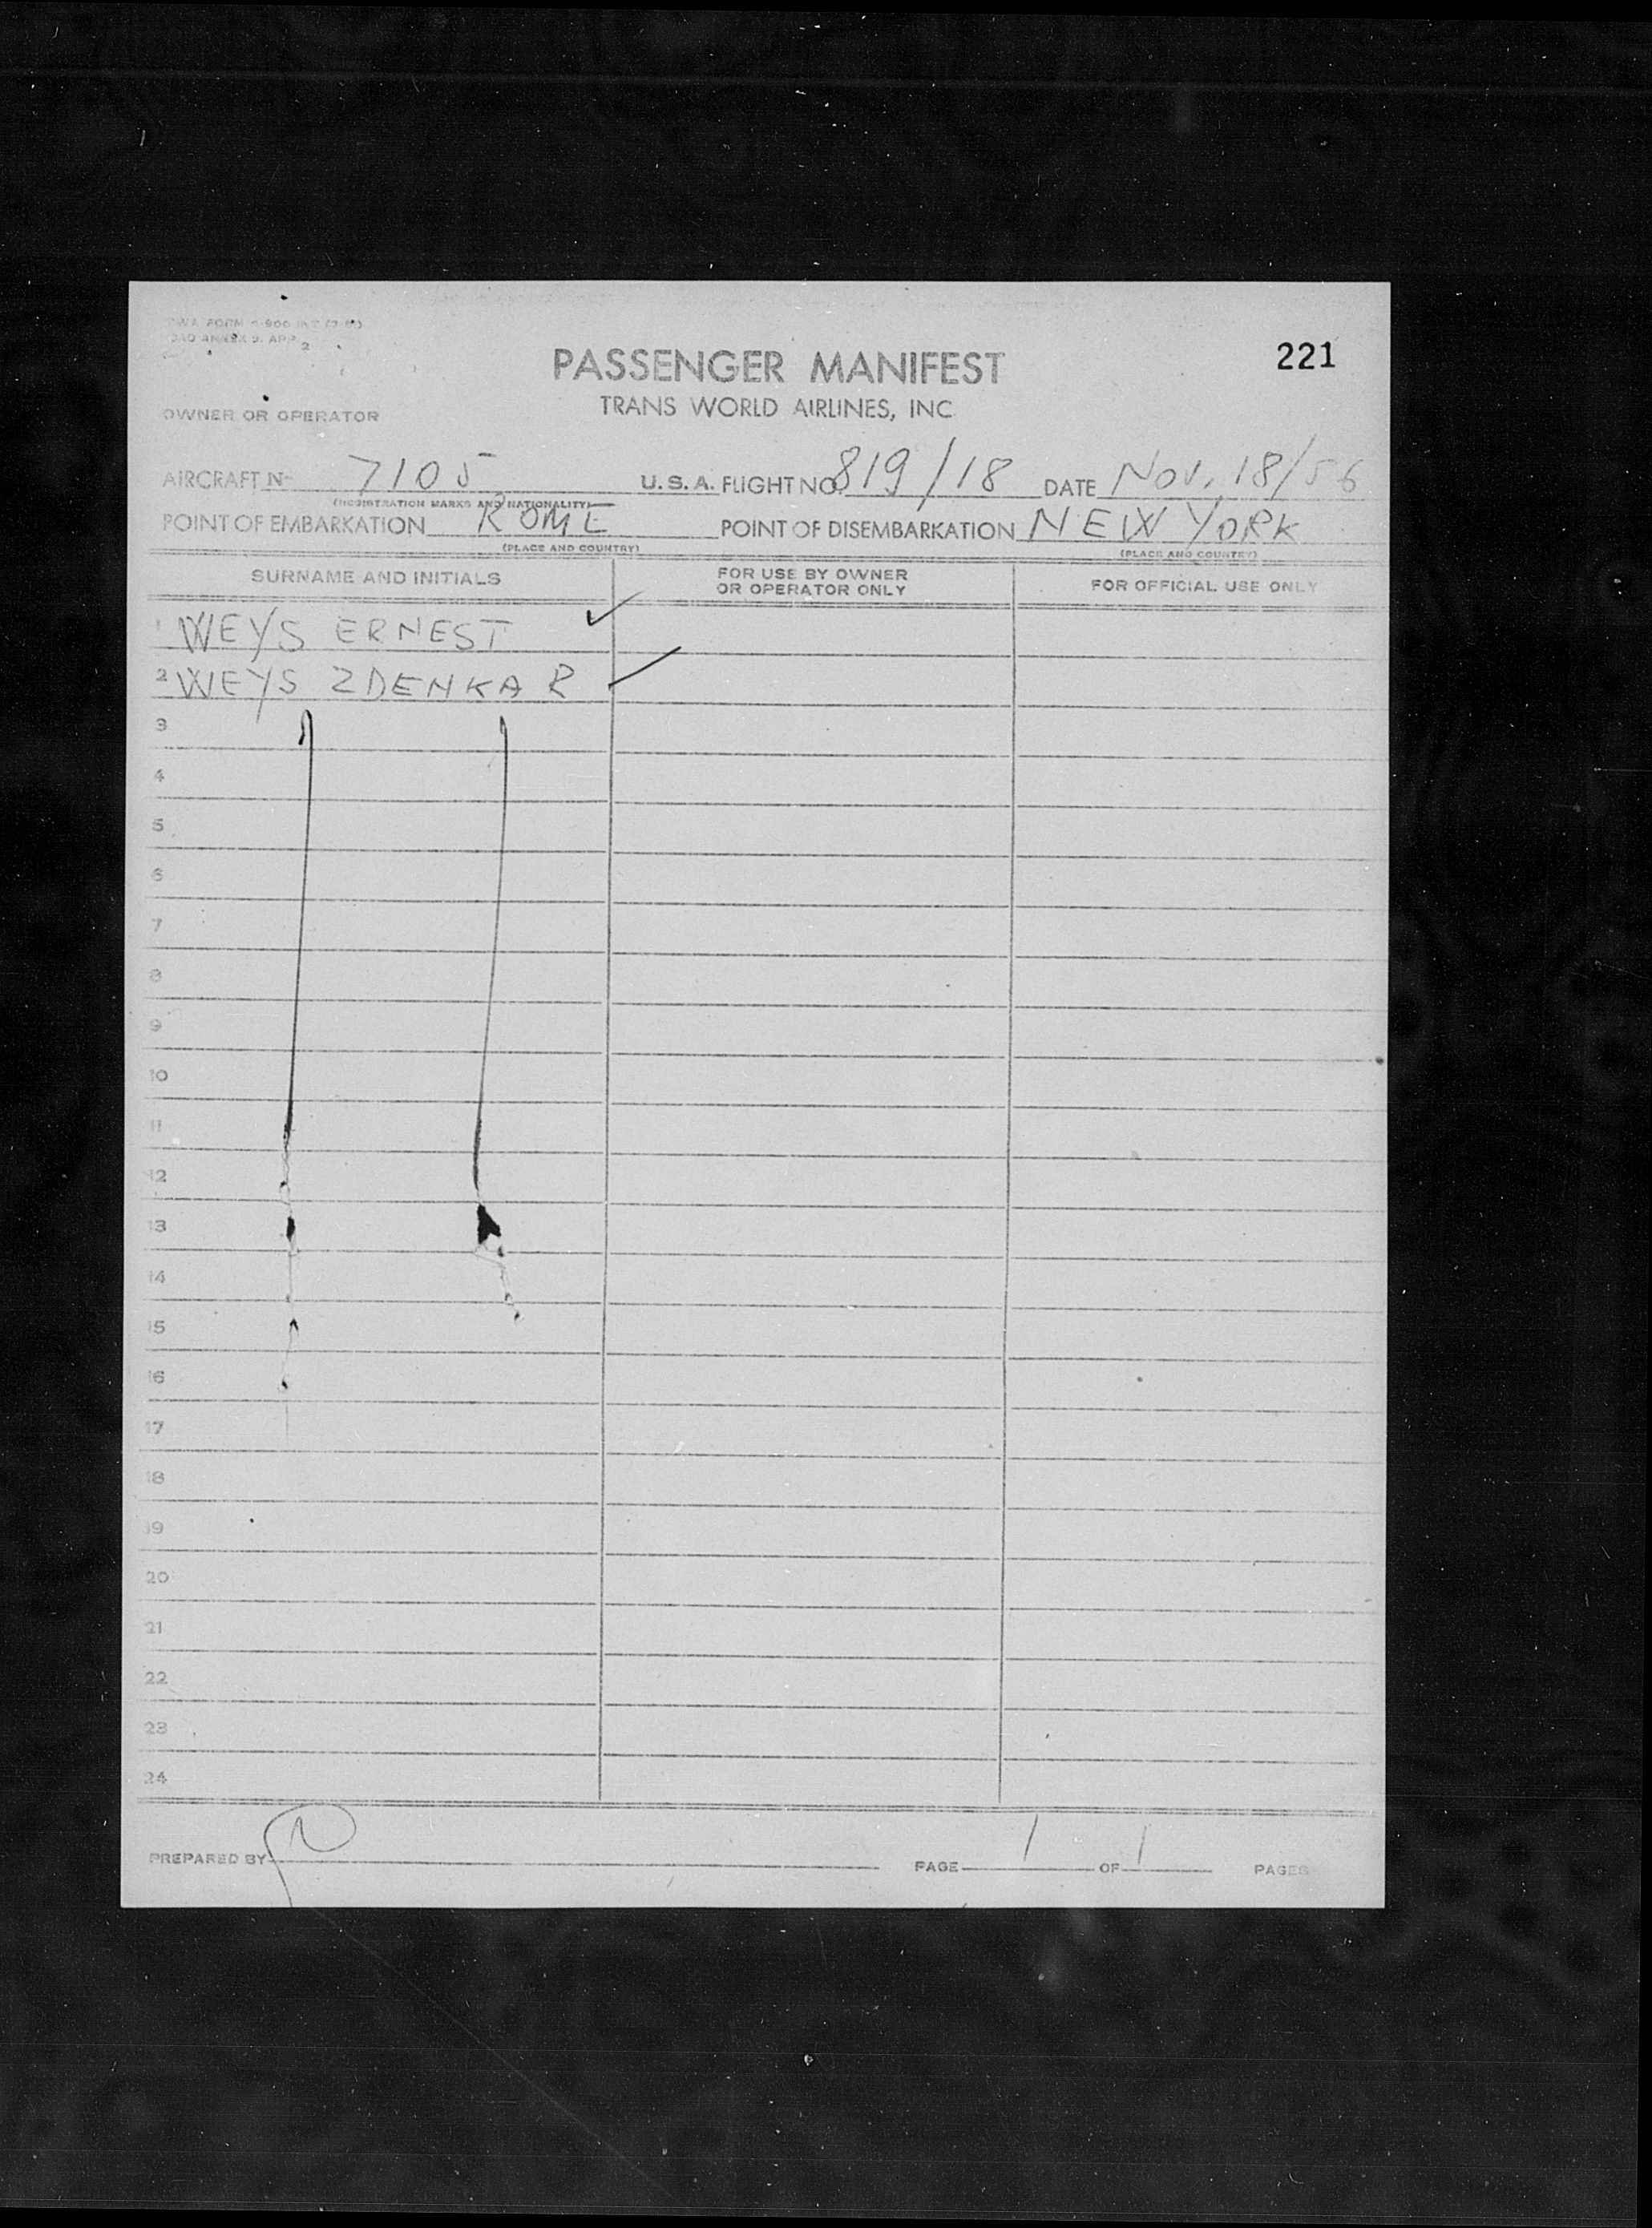 221
PASSENGER MANIFEST
TRANS WORLD AIRLINES, INC
OWNER OR OPERATOR
AIRCRAFT No 7105 U.S.A. FLIGHT NO. 819/18 DATE Nov. 18/56
(REGISTRATION MARKS AND NATIONALITY)
POINT OF EMBARKATION ROME POINT OF DISEMBARKATION NEW YORK
(PLACE AND COUNTRY) (PLACE AND COUNTRY)
SURNAME AND INITIALS FOR USE BY OWNER OR OPERATOR ONLY FOR OFFICIAL USE ONLY
1 WEYS ERNEST
2 WEYS ZDENKA R
3
4
5
6
7
8
9
10
11
12
13
14
15
16
17
18
19
20
21
22
23
24
PREPARED BY PAGE 1 OF 1 PAGES